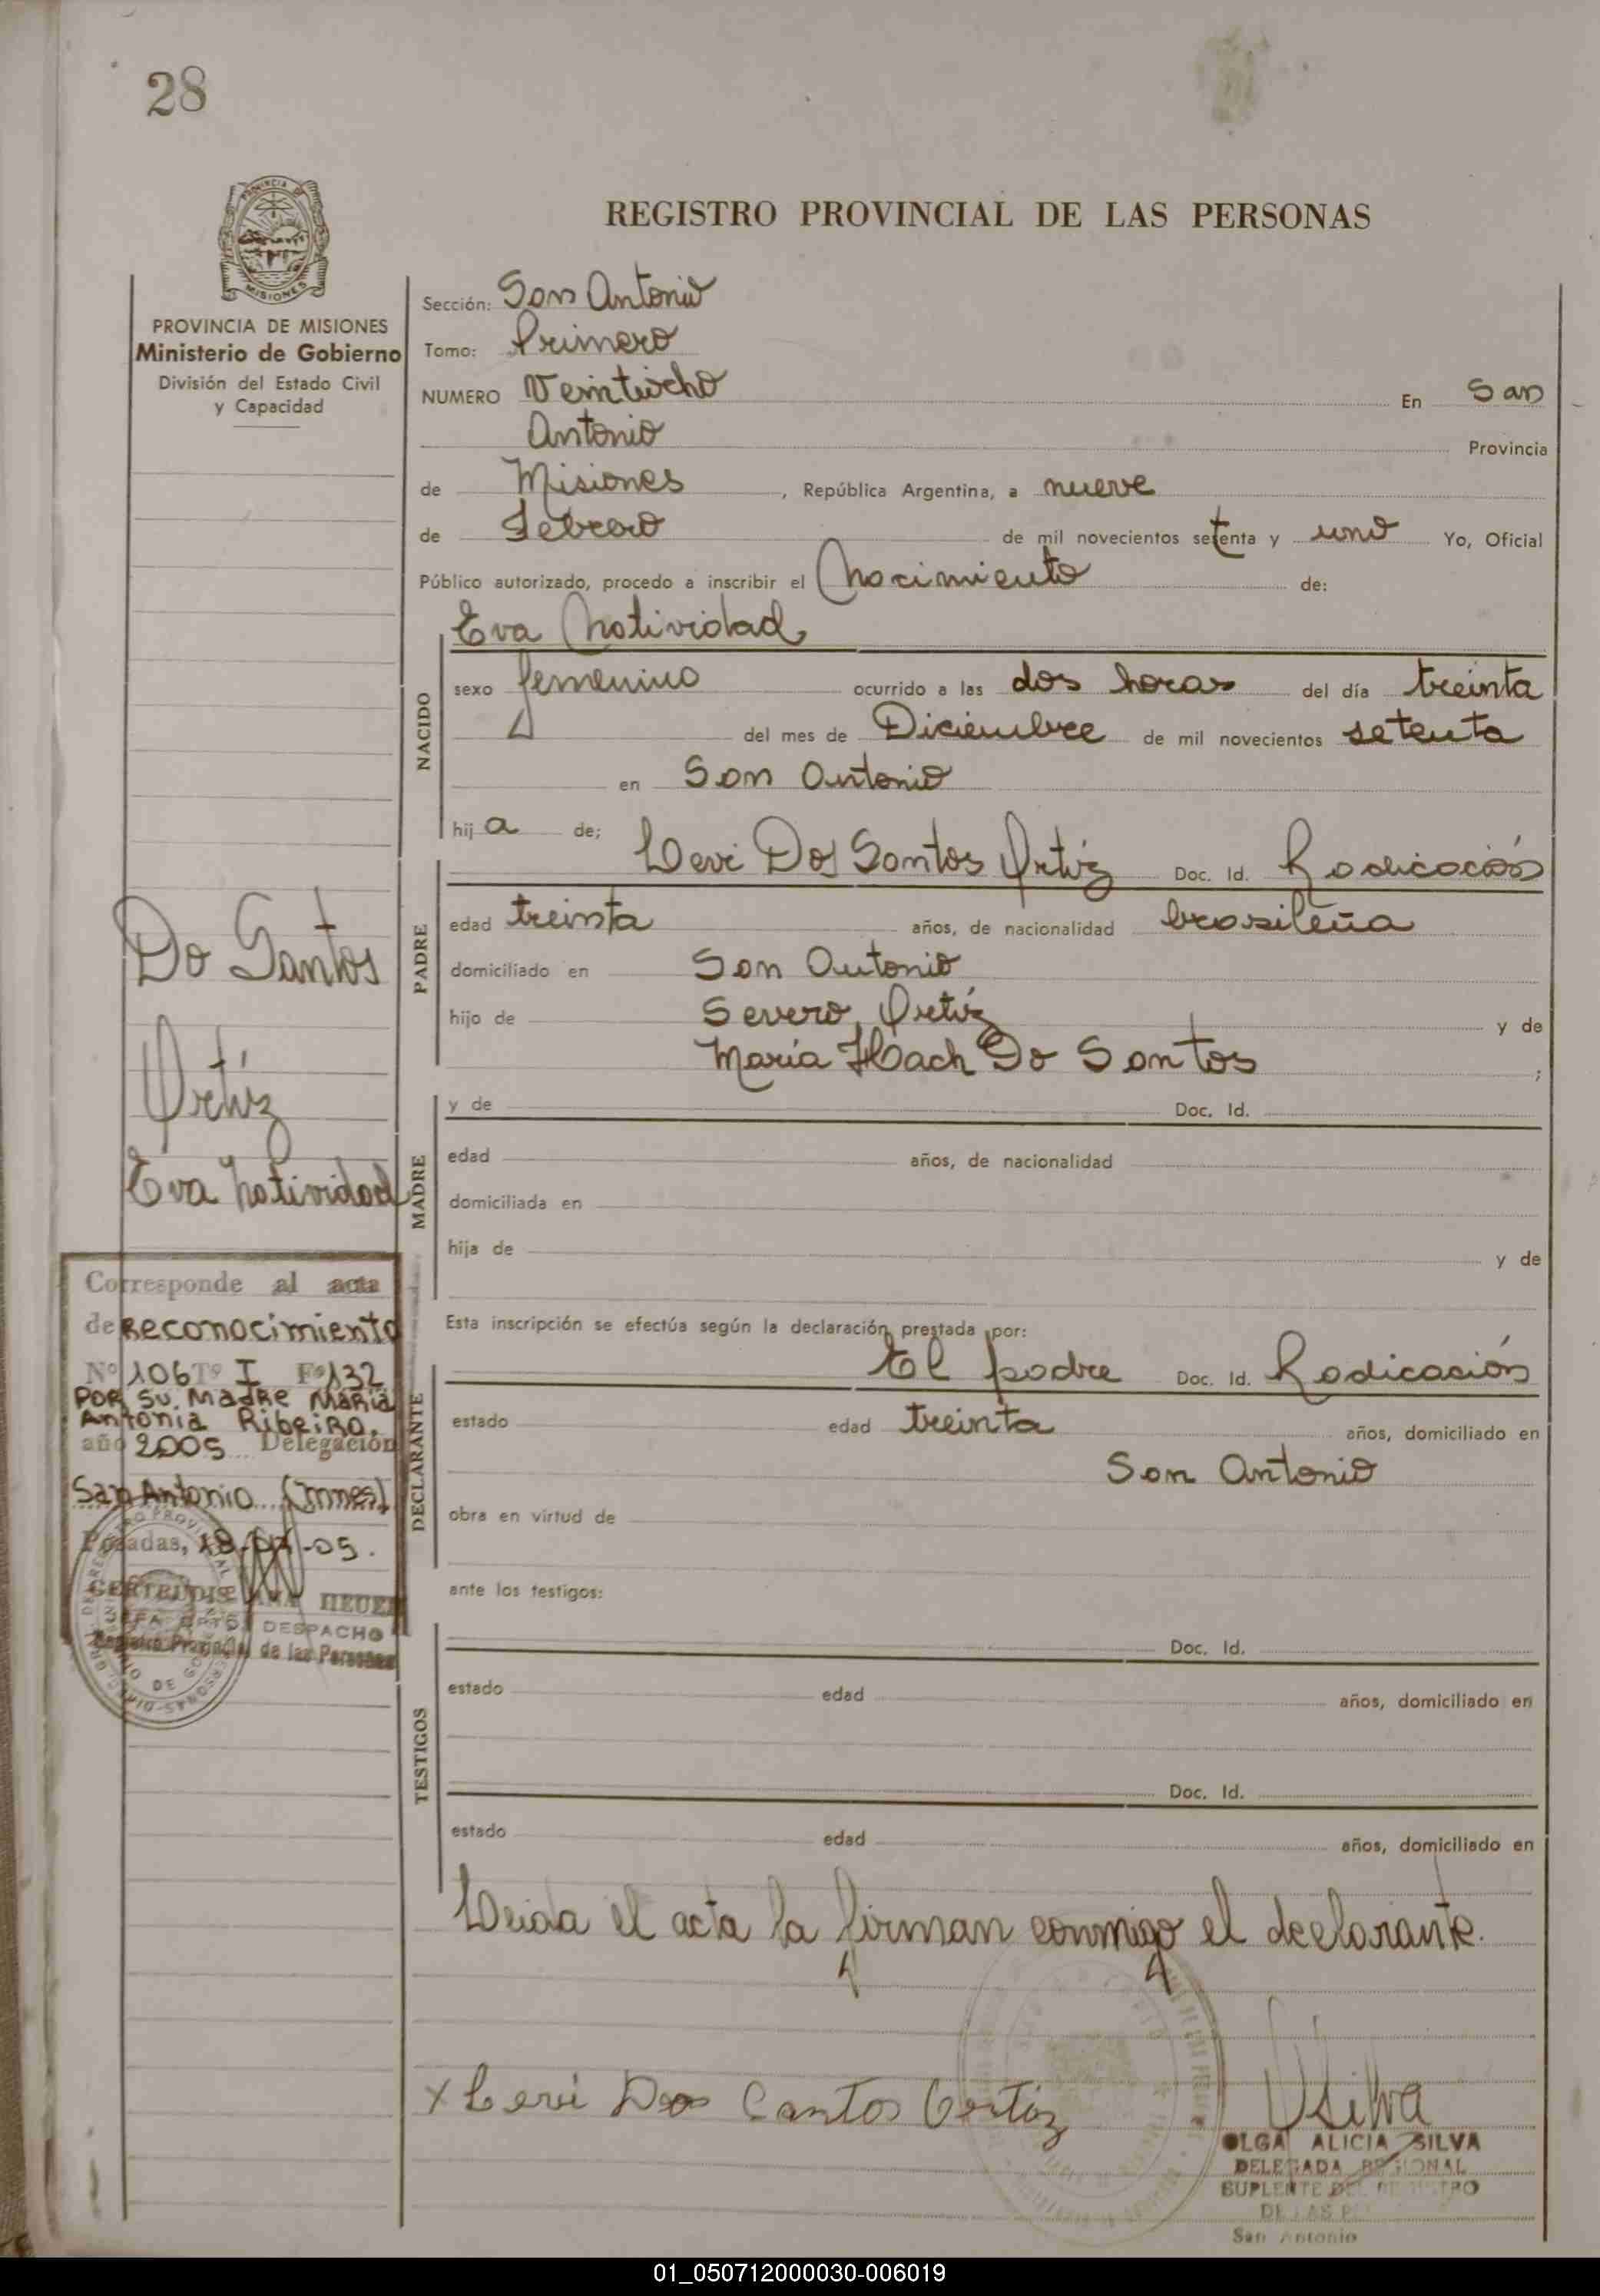 28
PROVINCIA DE
MISIONES
PROVINCIA DE MISIONES
Ministerio de Gobierno
División del Estado Civil
y Capacidad
REGISTRO PROVINCIAL DE LAS PERSONAS
Sección: San Antonio
Tomo: Primero
NUMERO Veintiocho En San
Antonio Provincia
de Misiones , República Argentina, a nueve
de Febrero de mil novecientos setenta y uno Yo, Oficial
Público autorizado, procedo a inscribir el Nacimiento de:
Eva Natividad
NACIDO
sexo femenino ocurrido a las dos horas del día treinta
del mes de Diciembre de mil novecientos setenta
en San Antonio
hija de; Levi Dos Santos Ortíz Doc. Id. Radicación
PADRE
edad treinta años, de nacionalidad brasileña
domiciliado en San Antonio
hijo de Severo Ortíz y de
María Do Santos ;
MADRE
y de Doc. Id.
edad años, de nacionalidad
domiciliada en
hija de y de
Esta inscripción se efectúa según la declaración prestada por:
El padre Doc. Id. Radicación
DECLARANTE
estado edad treinta años, domiciliado en
San Antonio
obra en virtud de
ante los testigos:
TESTIGOS
Doc. Id.
estado edad años, domiciliado en
Doc. Id.
estado edad años, domiciliado en
Leida el acta la firman conmigo el declarante.
x Levi Dos Santos Ortiz
Silva
OLGA ALICIA SILVA
DELEGADA REGIONAL
SUPLENTE DEL REGISTRO
DE LAS
San Antonio
Do Santos
Ortíz
Eva Natividad
Corresponde al acta
de Reconocimiento
Nº 106 Tº I Fº 132
POR SU Madre María
Antonia Ribeiro.
año 2005 Delegación
San Antonio (Mnes)
Posadas, -05.
GERTRUDIS
JEFA DPTO. DESPACHO
Registro Provincial de las Personas
01_050712000030-006019